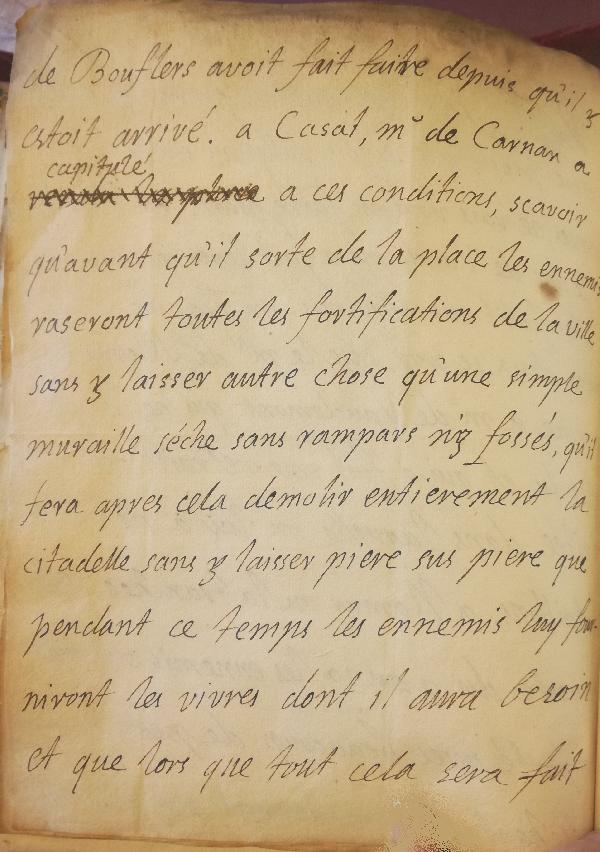 de Bouflers avoit fait faire depuis qu'il y
estoit arrivé. a Casal, mr de Carnan a
capitulé
a ces conditions, scavoir
qu'avant qu'il sorte de la place les ennemis
raseront toutes les fortifications de la ville
sans y laisser autre chose qu'une simple
muraille séche sans rampars n'y fossés, qu'il
fera apres cela demolir entierement la
citadelle sans y laisser piere sus piere que
pendant ce temps les ennemis luy four-
niront les vivres dont il aura besoin
et que lors que tout cela sera fait